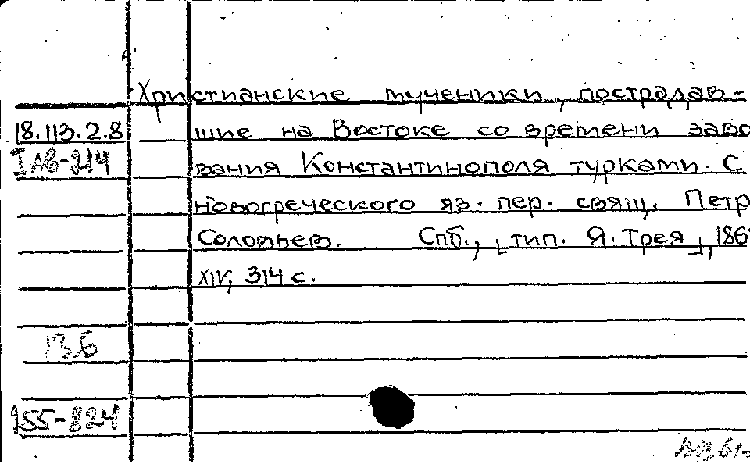 Христианские мученики, пострадав-
18.113.2.8 шие на Востоке со времени заво
вания Константинополя турками. С
новогреческого яз. пер. свящ. Петр
Соловьев. Спб., [тип. Я. Трея], 186
XIV, 314 с.
136
155-824